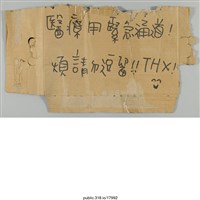 醫療用緊急通道!
煩請勿逗留!! THX!
public.318.io/17992